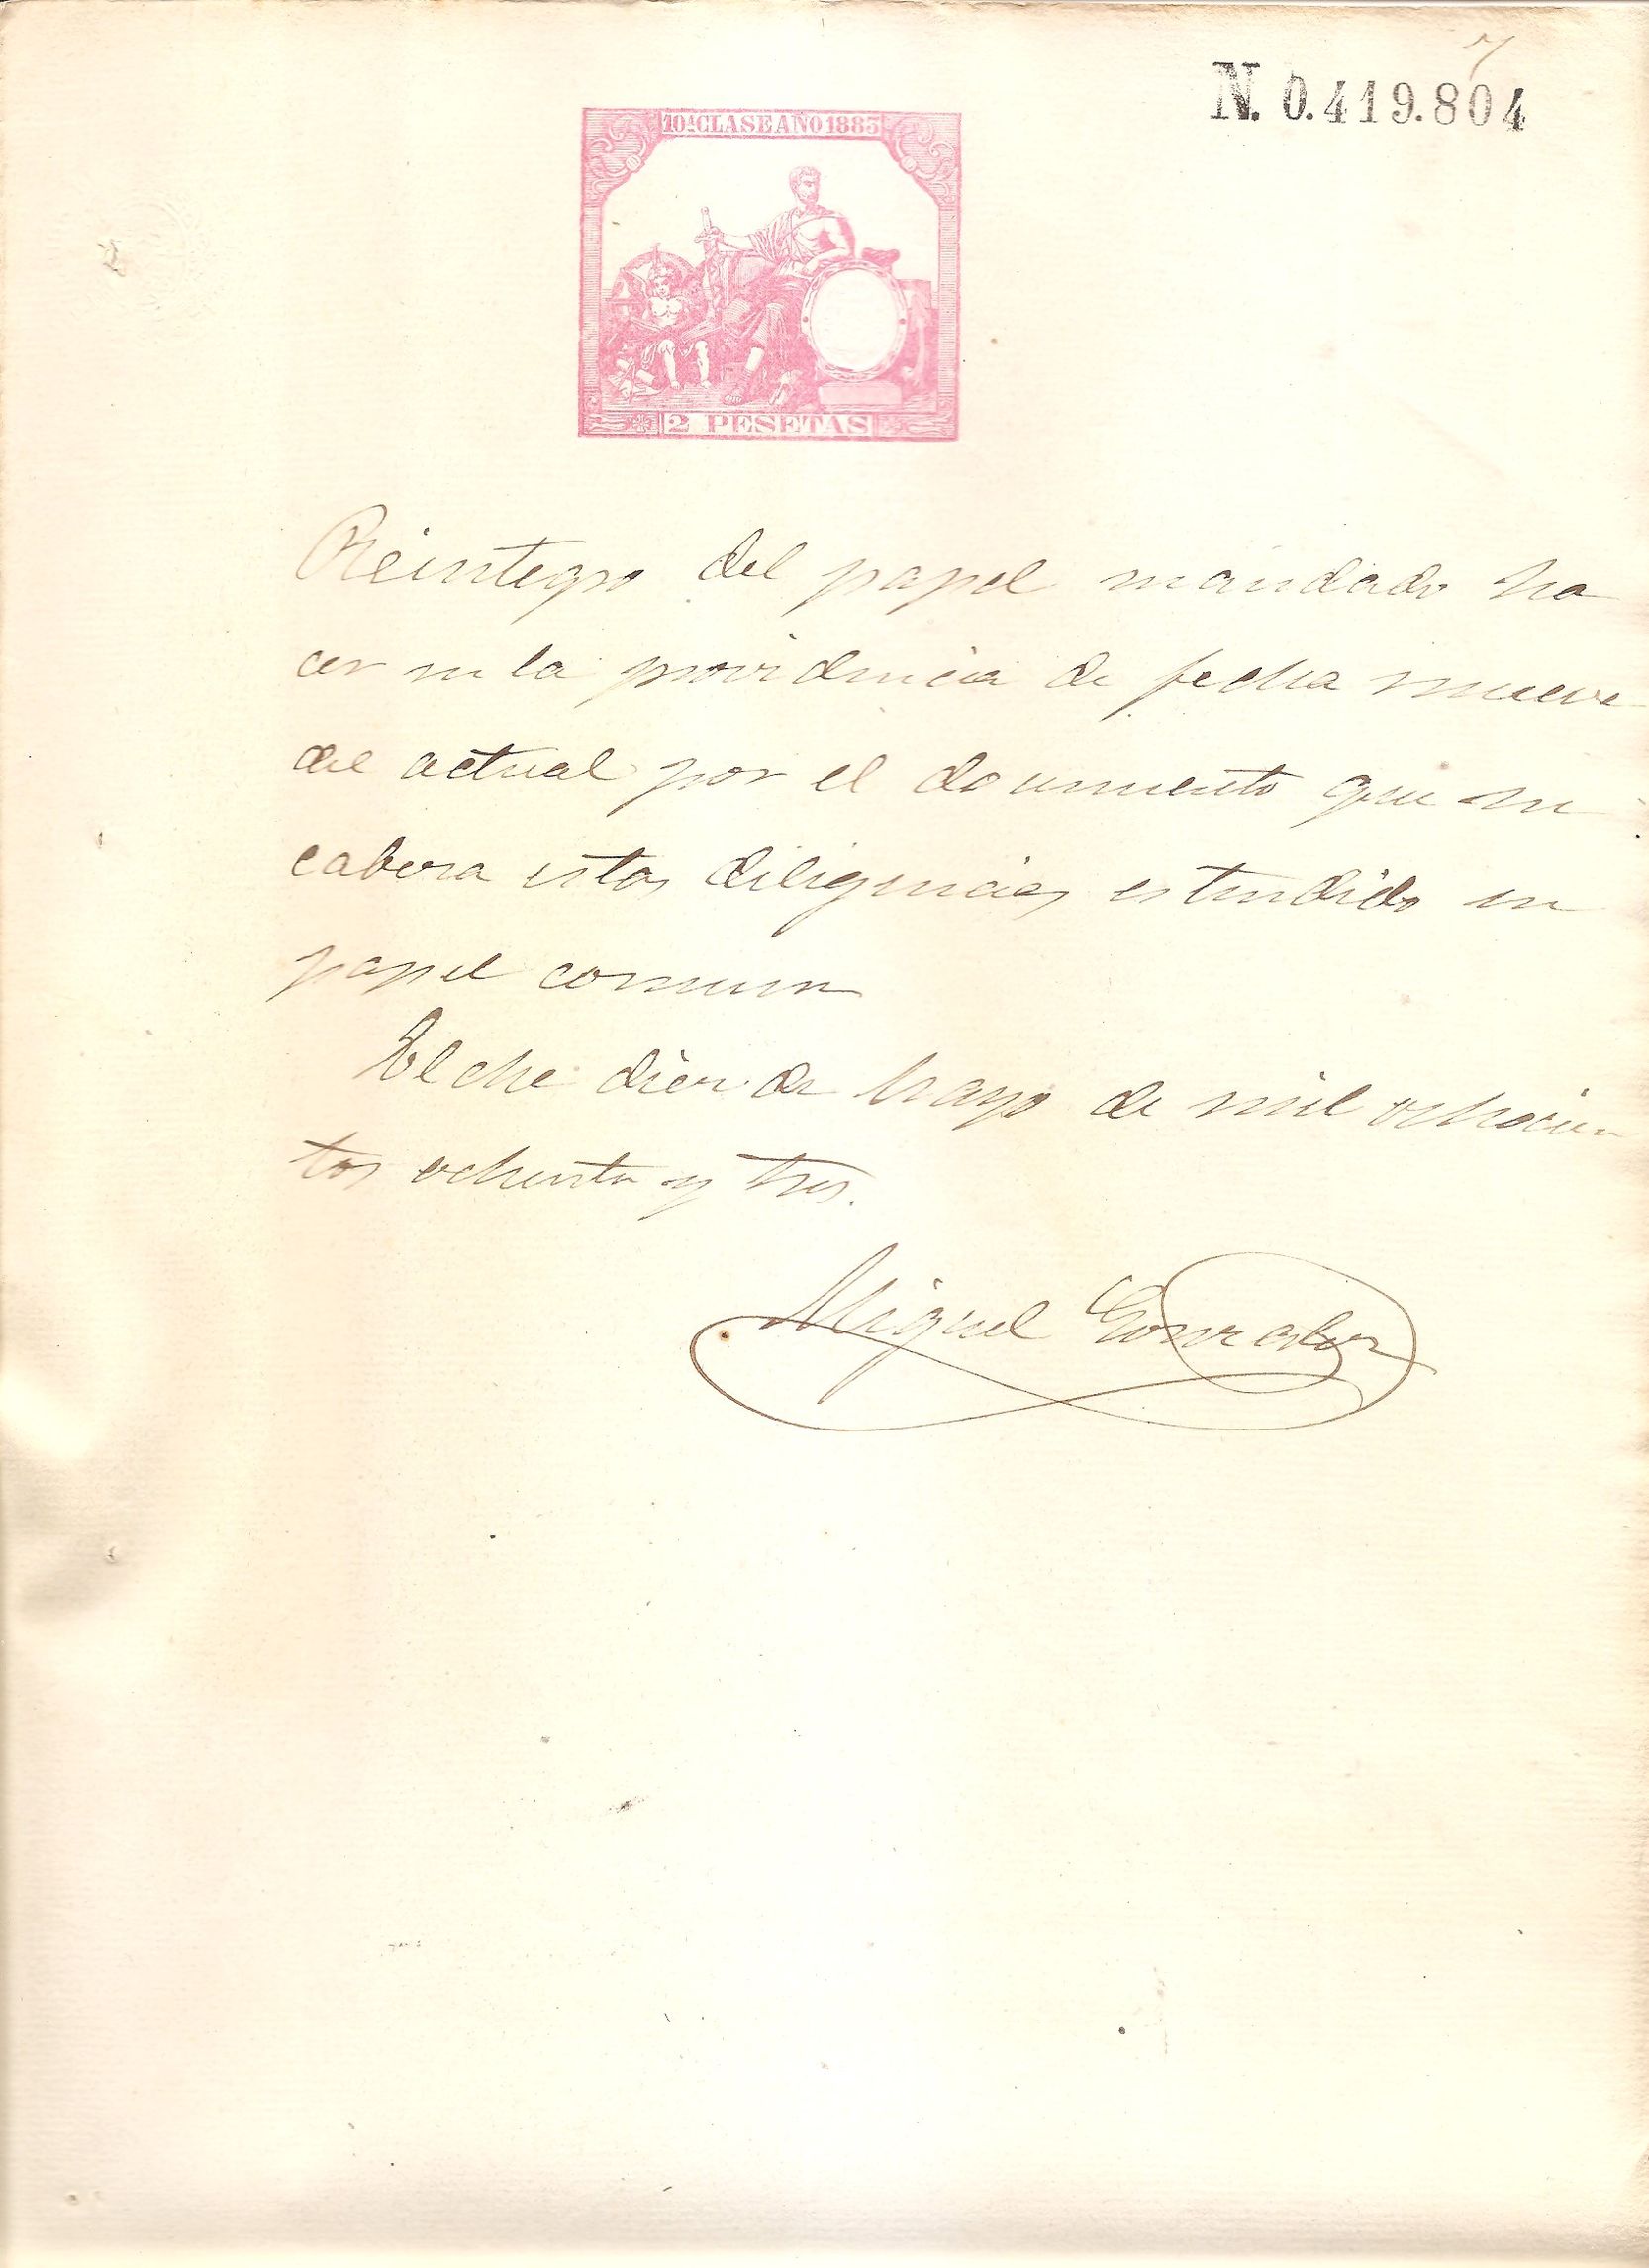 7
N. 0.419.804
10ª CLASE AÑO 1883
2 PESETAS
Reintegro del papel mandado ha
cer en la providencia de fecha nueve
del actual por el documento que en
cabeza estas diligencias estendido en
papel comun
Elche diez de Mayo de mil ochocien
tos ochenta y tres.
Miguel Gonzalez